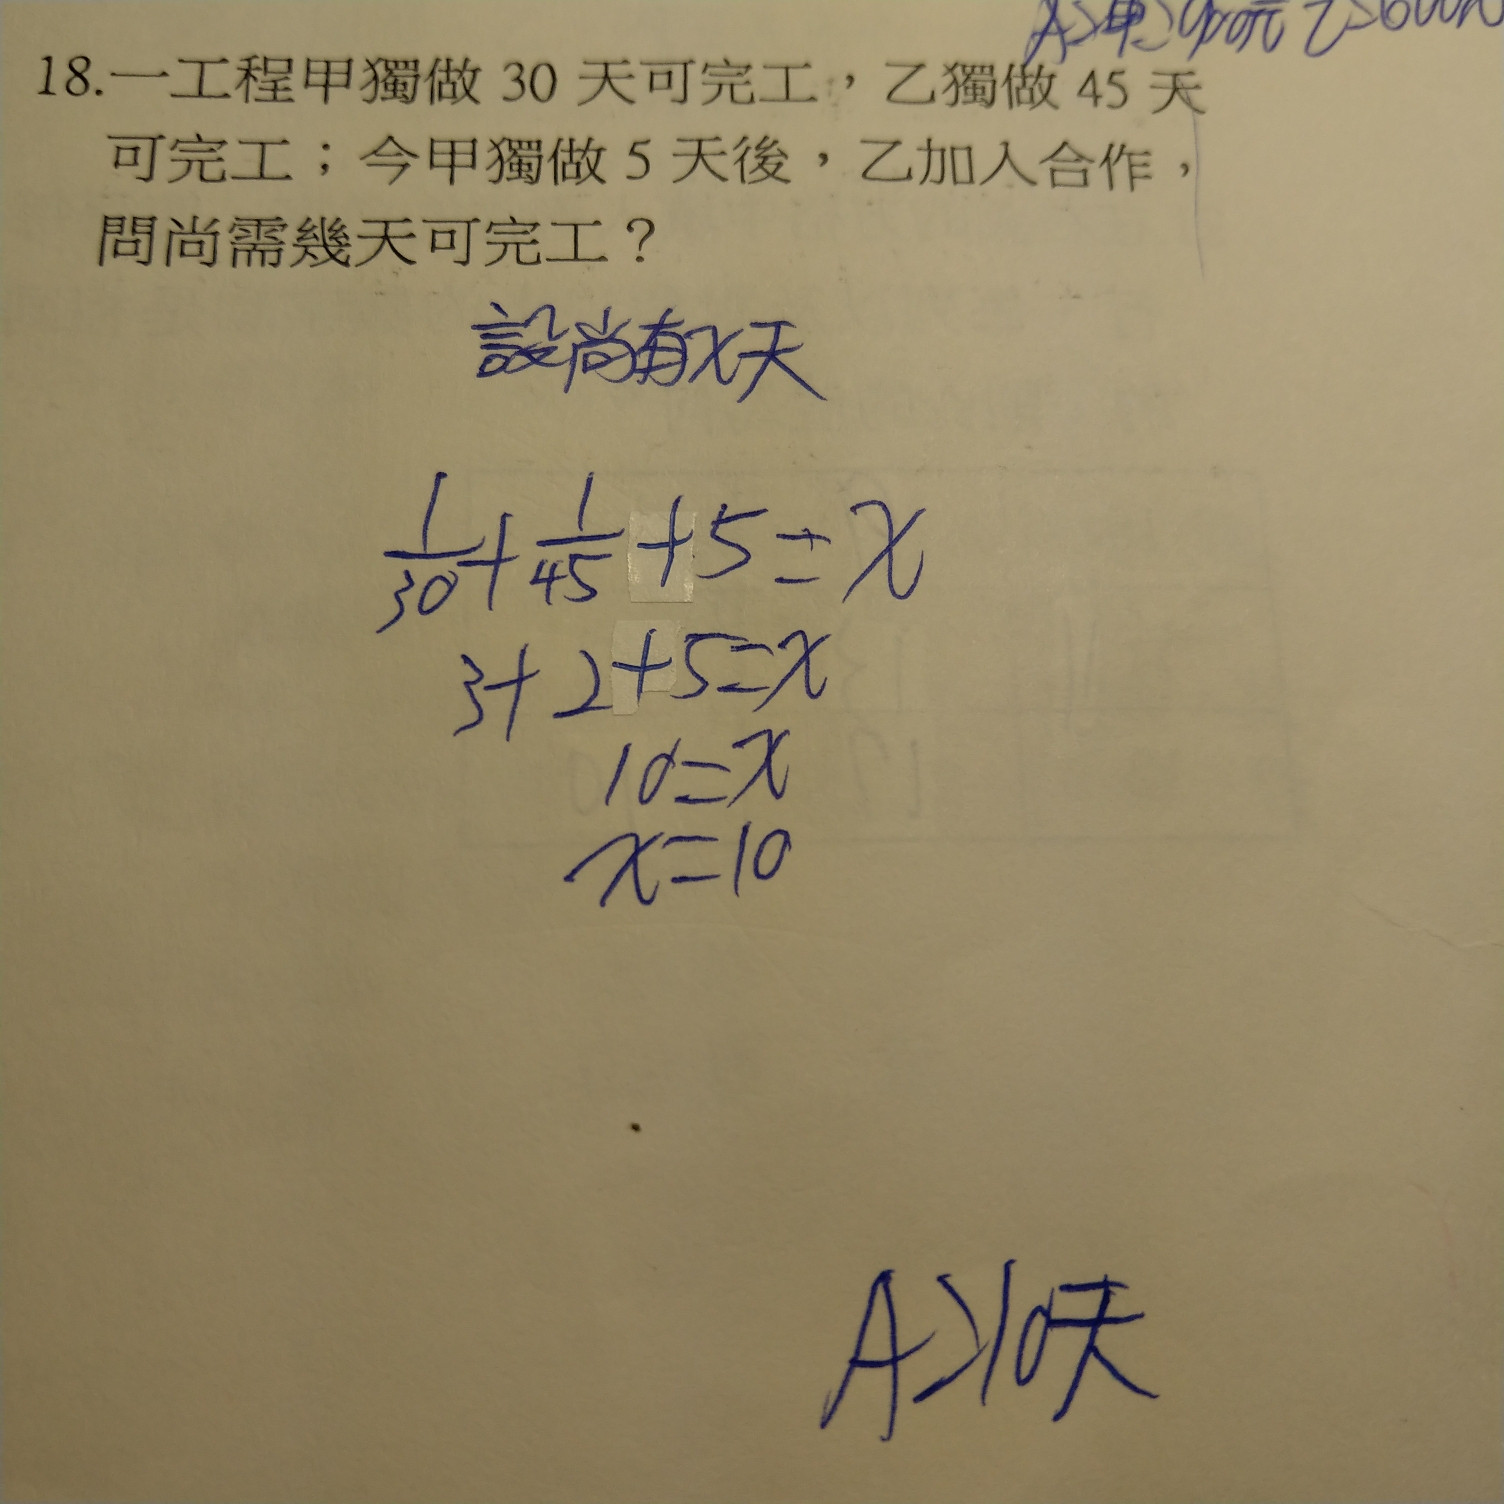 A>甲>900元 乙>600元
18.一工程甲獨做 30 天可完工，乙獨做 45 天
可完工；今甲獨做 5 天後，乙加入合作，
問尚需幾天可完工？
設尚有x天
1/30+1/45+5=x
3+2+5=x
10=x
x=10
A>10天